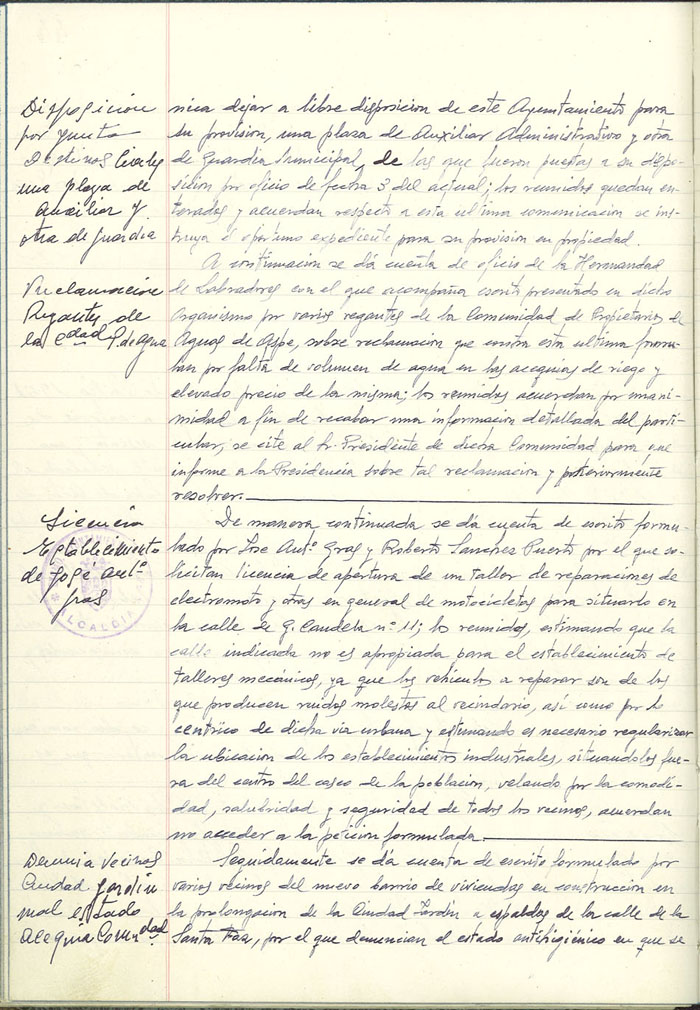 Disposicion
por Junta
Destinos Civiles
una plaza de
Auxiliar y
otra de guardia
nica dejar a libre disposicion de este Ayuntamiento para
su provision, una plaza de Auxiliar Administrativo y otra
de Guardia Municipal, de las que fueron puestas a su dispo-
sicion por oficio de fecha 3 del actual; los reunidos quedan en-
terados y acuerdan respecto a esta ultima comunicacion se ins-
truya el oportuno expediente para su provision en propiedad.
Reclamacion
Regantes de
la Cdad P. de agua
A continuacion se dá cuenta de oficio de la Hermandad
de Labradores con el que acompaña escrito presentado en dicho
Organismo por varios regantes de la Comunidad de Propietarios de
Aguas de Aspe, sobre reclamacion que contra esta ultima formu-
lan por falta de volumen de agua en las acequias de riego y
elevado precio de la misma; los reunidos acuerdan por unani-
midad a fin de recabar una informacion detallada del parti-
cular, se cite al Sr. Presidente de dicha Comunidad para que
informe a la Presidencia sobre tal reclamacion y posteriormente
resolver.
Licencia
Establecimiento
de José Antº
Gras
ALCALDIA
De manera continuada se dá cuenta de escrito formu-
lado por Jose Antº Gras y Roberto Sanchez Puerto por el que so-
licitan licencia de apertura de un taller de reparaciones de
electromoto y otras en general de motocicletas para situarlo en
la calle de G. Candela nº 11; los reunidos, estimando que la
calle indicada no es apropiada para el establecimiento de
talleres mecánicos, ya que los vehiculos a reparar son de los
que producen ruidos molestos al vecindario, así como por lo
centrico de dicha via urbana y estimando es necesario regularizar
la ubicacion de los establecimientos industriales, situandolos fue-
ra del centro del casco de la poblacion, velando por la comodi-
dad, salubridad y seguridad de todos los vecinos, acuerdan
no acceder a la peticion formulada.
Denuncia vecinos
Ciudad Jardin
mal estado
acequia Comudad
Seguidamente se dá cuenta de escrito formulado por
varios vecinos del nuevo barrio de viviendas en construccion en
la prolongacion de la Ciudad Jardin a espaldas de la calle de la
Santa Faz, por el que denuncian el estado antihigiénico en que se